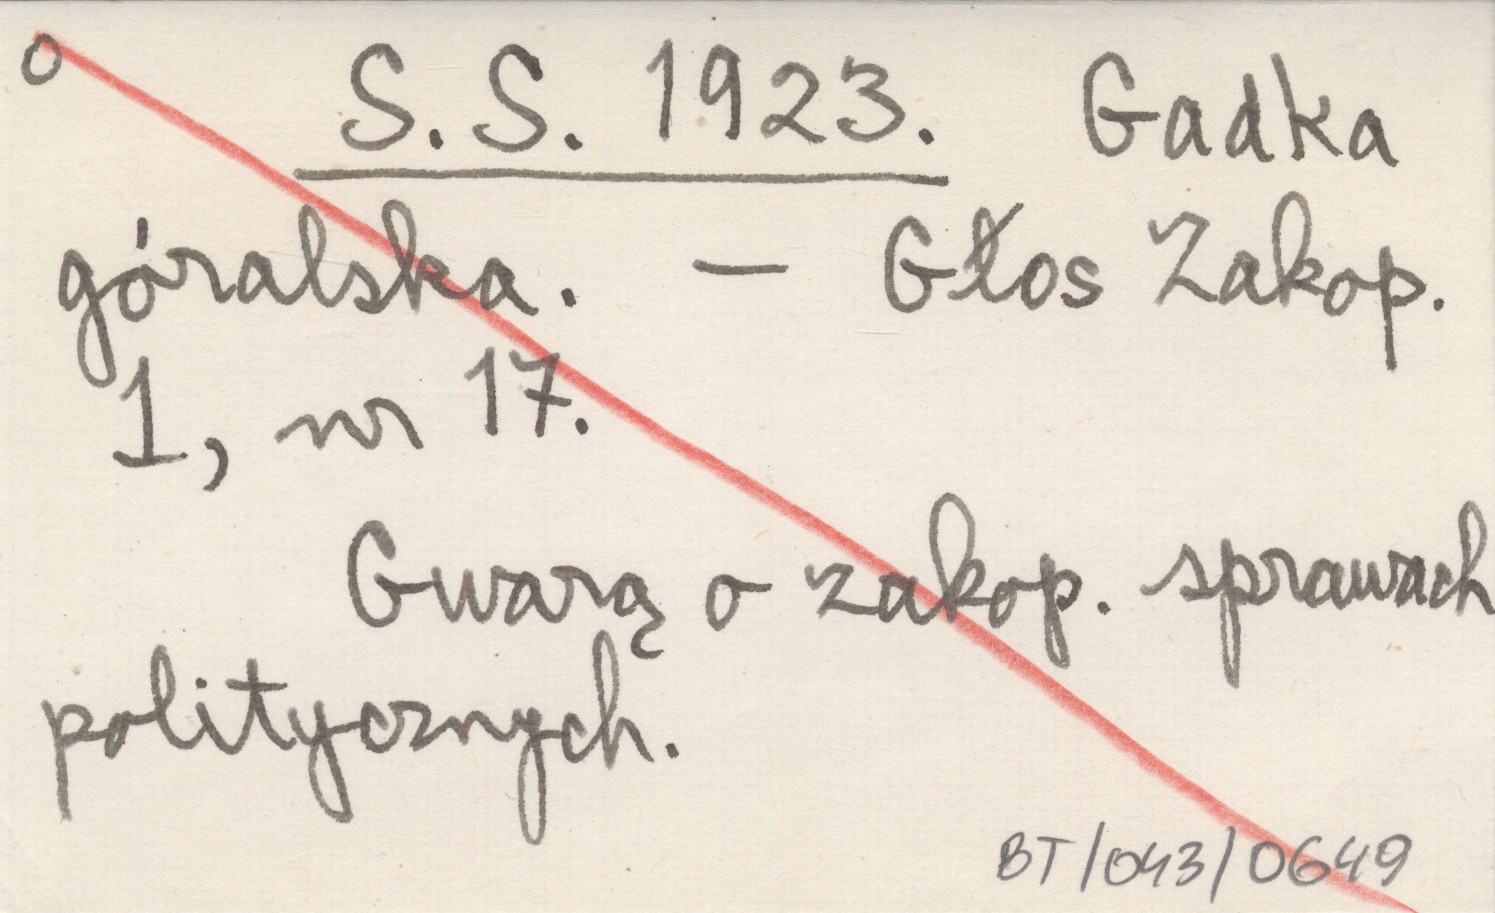 o S.S. 1923. Gadka
góralska. — Głos Zakop.
1, nr 17.
Gwarą o zakop. sprawach
politycznych.
BT/043/0649